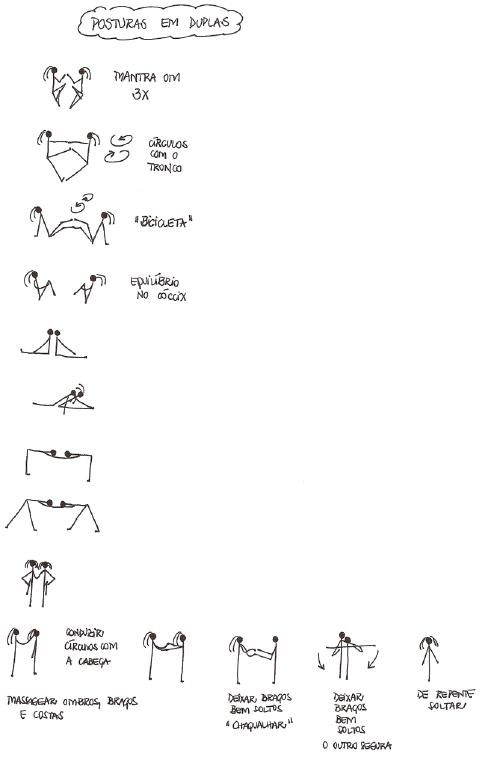 POSTURAS EM DUPLAS
MANTRA OM
3X
CÍRCULOS
COM O
TRONCO
"BICICLETA"
EQUILÍBRIO
NO CÓCCIX
CONDUZIR
CÍRCULOS COM
A CABEÇA
MASSAGEAR OMBROS, BRAÇOS
E COSTAS
DEIXAR BRAÇOS
BEM SOLTOS
"CHAQUALHAR"
DEIXAR
BRAÇOS
BEM
SOLTOS
O OUTRO SEGURA
DE REPENTE
SOLTAR